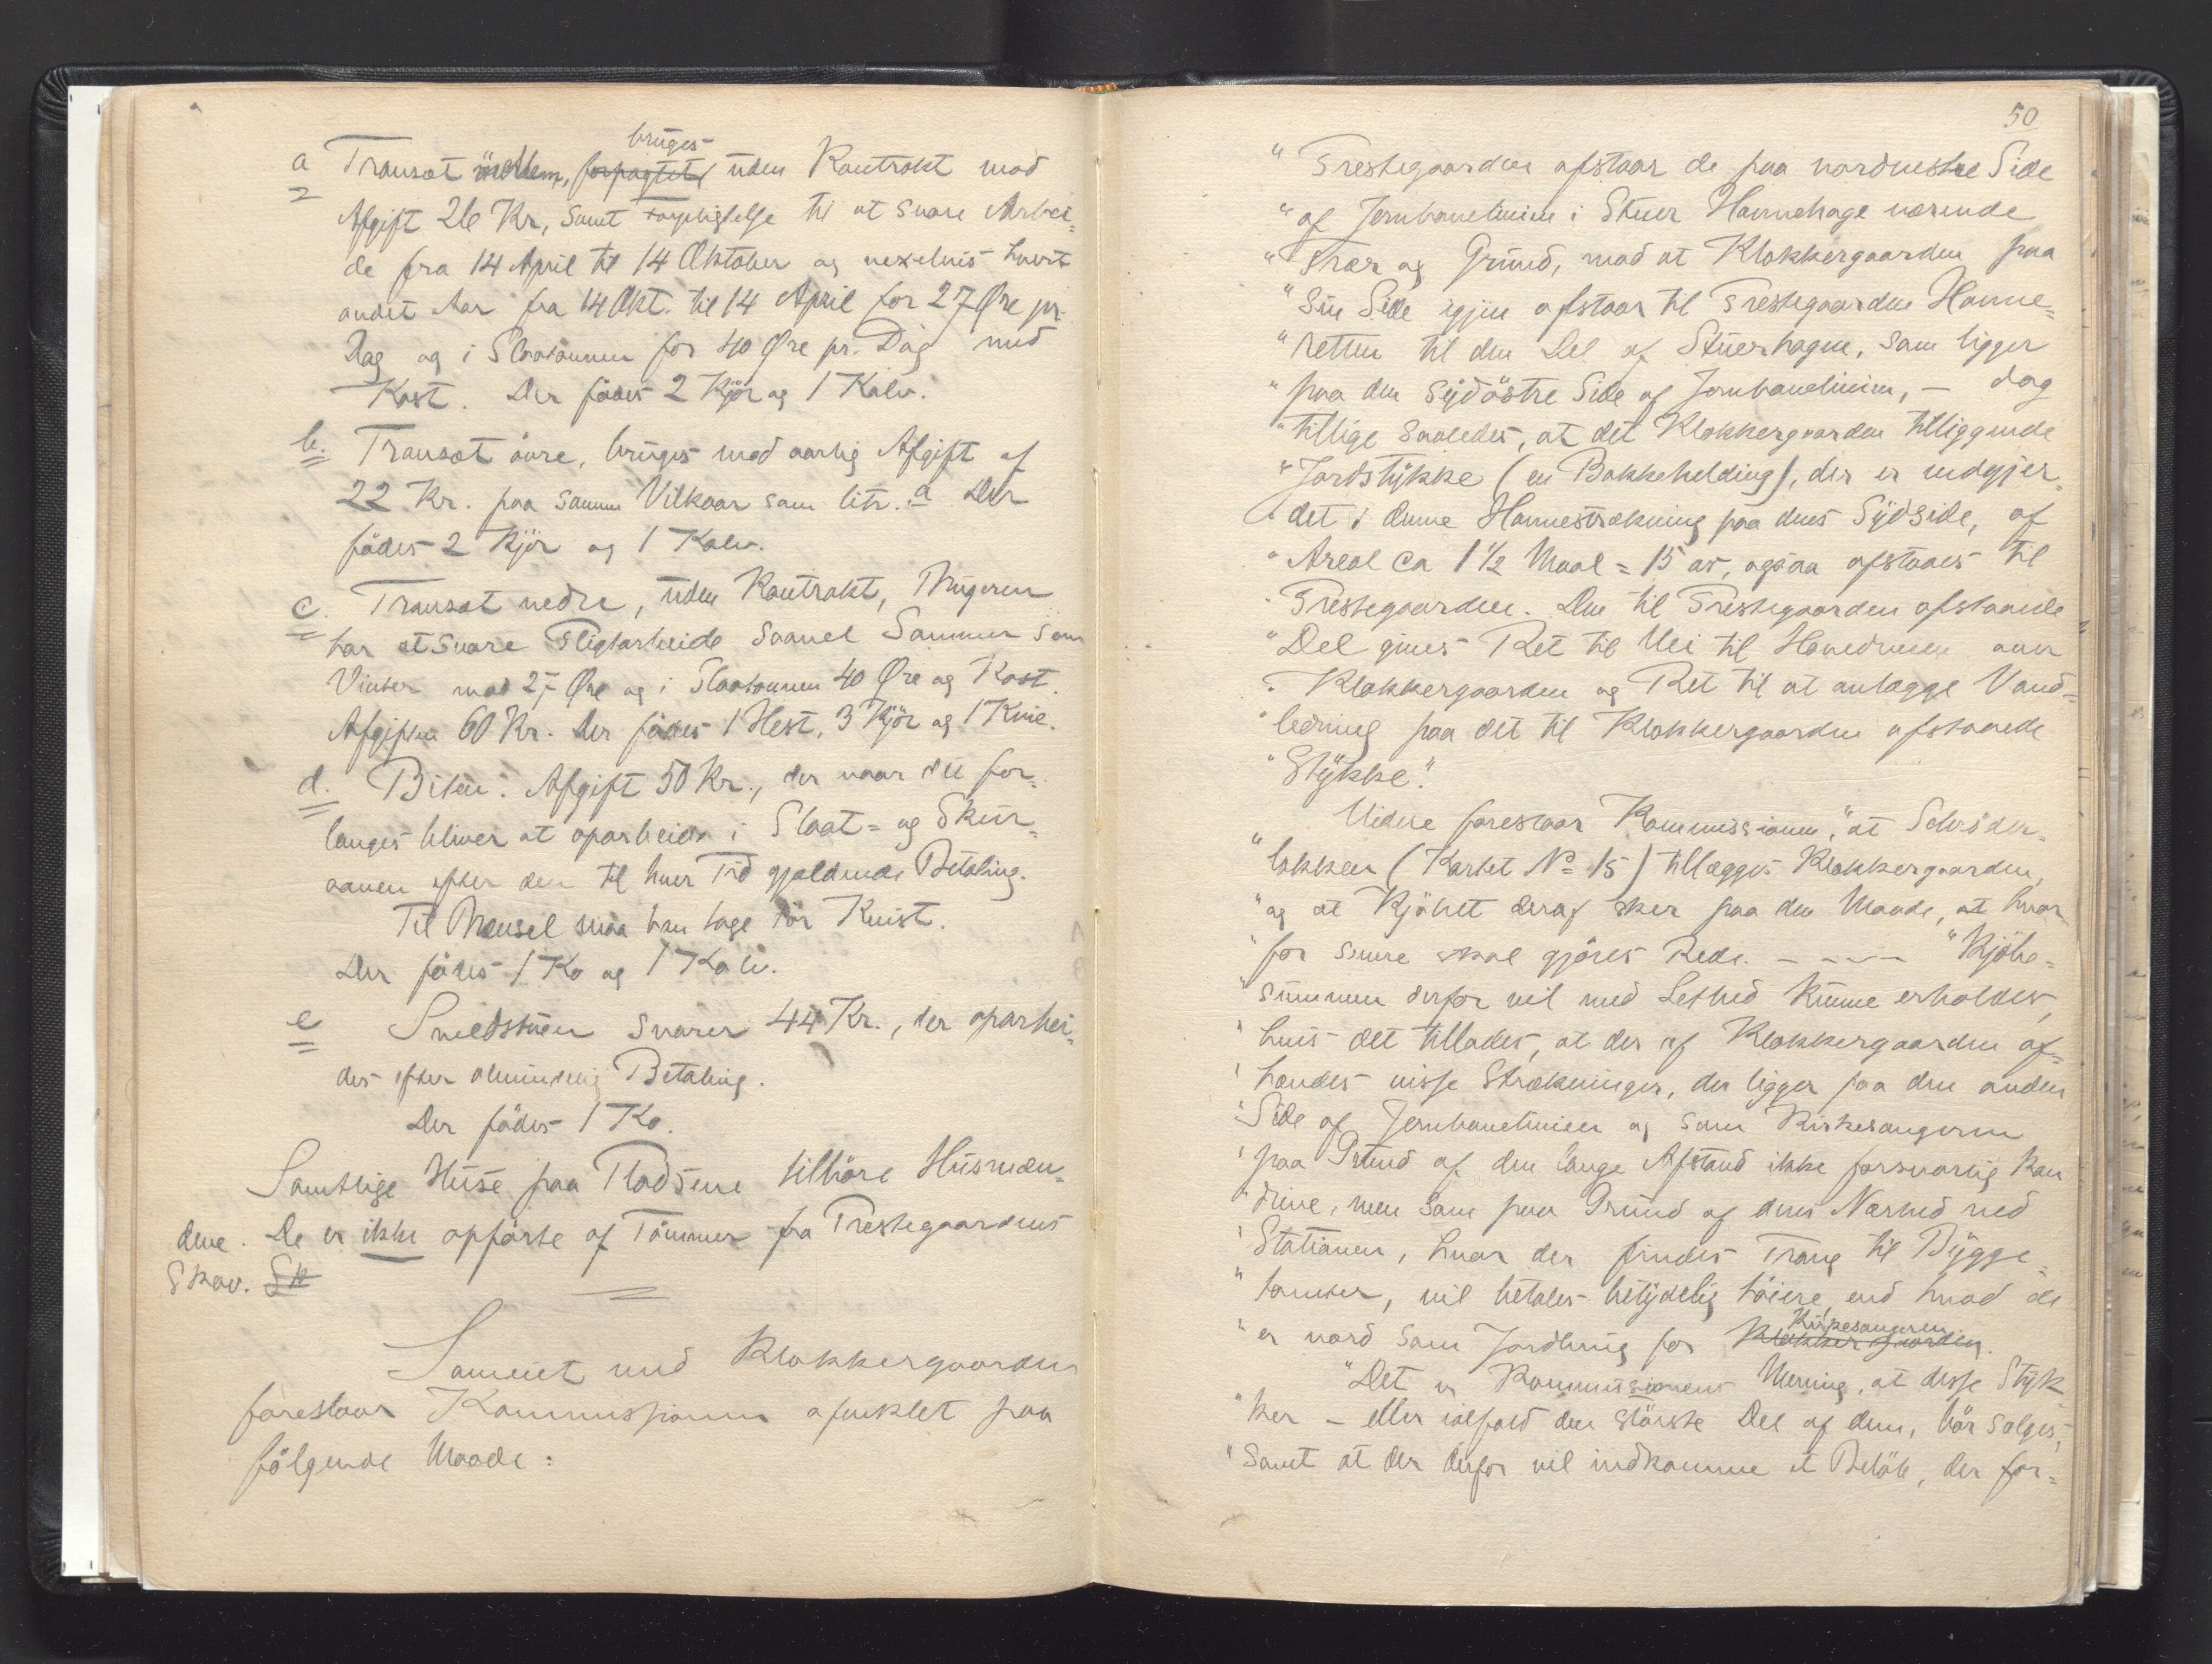 bruges
a Transæt mellem, forpagtet, uden Kontrakt mod
Afgift 26 Kr, samt Forpligtelse til at svare Arbei=
de fra 14 April til 14 Oktober og vexelvis hvert
andet Aar fra 14 Okt. til 14 April for 27 Øre pr.
Dag og i Slaatonnen for 40 Øre pr. Dag med
Kost. Der födes 2 Kjör og 1 Kalv.
b. Transæt övre, bruges mod aarlig Afgift af
22 Kr. paa samme Vilkaar som litr. a Der
födes 2 Kjör og 1 Kalv.
c. Transæt nedre, uden Kontrakt, Brugeren
har at svare Pligtarbeide saavel Sommer som
Vinter mod 27 Øre og i Slaatonnen 40 Øre og Kost.
Afgiften 60 Kr. Der födes 1 Hest, 3 Kjör og 1 Kvie.
d. Afgift 50 Kr., der naar det for=
langes bliver at oparbeide i Slaat= og Skur=
aanen efter den til hver Tid gjældende Betaling.
Til Brænsel maa han tage tör Kvist.
Der födes 1 Ko og 1 Kalv.
e Smedstuen svarer 44 Kr., der oparbei=
des efter almindelig Betaling.
Der födes 1 Ko.
Samtlige Huse paa Pladsene tilhöre Husmæn=
dene. De er ikke opförte af Tömmer fra Prestegaardens
Skov. Sk
Sameiet med Klokkergaarden
foreslaar Kommissionen afviklet paa
fölgende Maade:
50
" Prestegaarden afstaar de paa nordvestre Side
" af Jernbanelinien i Stuer Havnehage værende
" Trær og Grund, mod at Klokkergaarden paa
" sin Side igjen afstaar til Prestegaarden Havne=
" retten til den Del af Stuerhagen, som ligger
" paa den sydöstre Side af Jernbanelinien, – dog
" tillige saaledes, at det Klokkergaarden tilliggende
" Jordstykke (en Bakkehelding), der er indgjer=
" det i denne Havnestrækning paa dens Sydside, af
" Areal ca 1 1/2 Maal = 15 ar, ogsaa afstaaes til
" Prestegaarden. Den til Prestegaarden afstaaede
" Del gives Ret til Vei til Hovedveien over
" Klokkergaarden og Ret til at anlægge Vand=
" ledning paa det til Klokkergaarden afstaaede
" Stykke".
Videre foreslaar Kommissionen, "at Schröder=
" lökken (Kartet No 15) tillægges Klokkergaarden,
" og at Kjöbet deraf sker paa den Maade, at hvor
" for senere skal gjöres Rede. – – – – "Kjöbe=
" summen derfor vil med Lethed kunne erholdes,
" hvis det tillades, at der af Klokkergaarden af=
" hændes visse Strækninger, der ligger paa den anden
" Side af Jernbanelinien og som Kirkesangeren
" paa Grund af den lange Afstand ikke forsvarlig kan
" drive, men som paa Grund af dens Nærhed ved
" Stationen, hvor der findes Trang til Bygge=
" tomter, vil betales betydelig höiere, end hvad de
Kirkesangeren
" er værd som Jordbrug for Klokkergaarden.
" Det er Kommissionens Mening, at disse Styk=
" ker – eller ialfald den störste Del af dem, bör sælges,
" samt at der derfor vil indkomme et Belöb, der for=